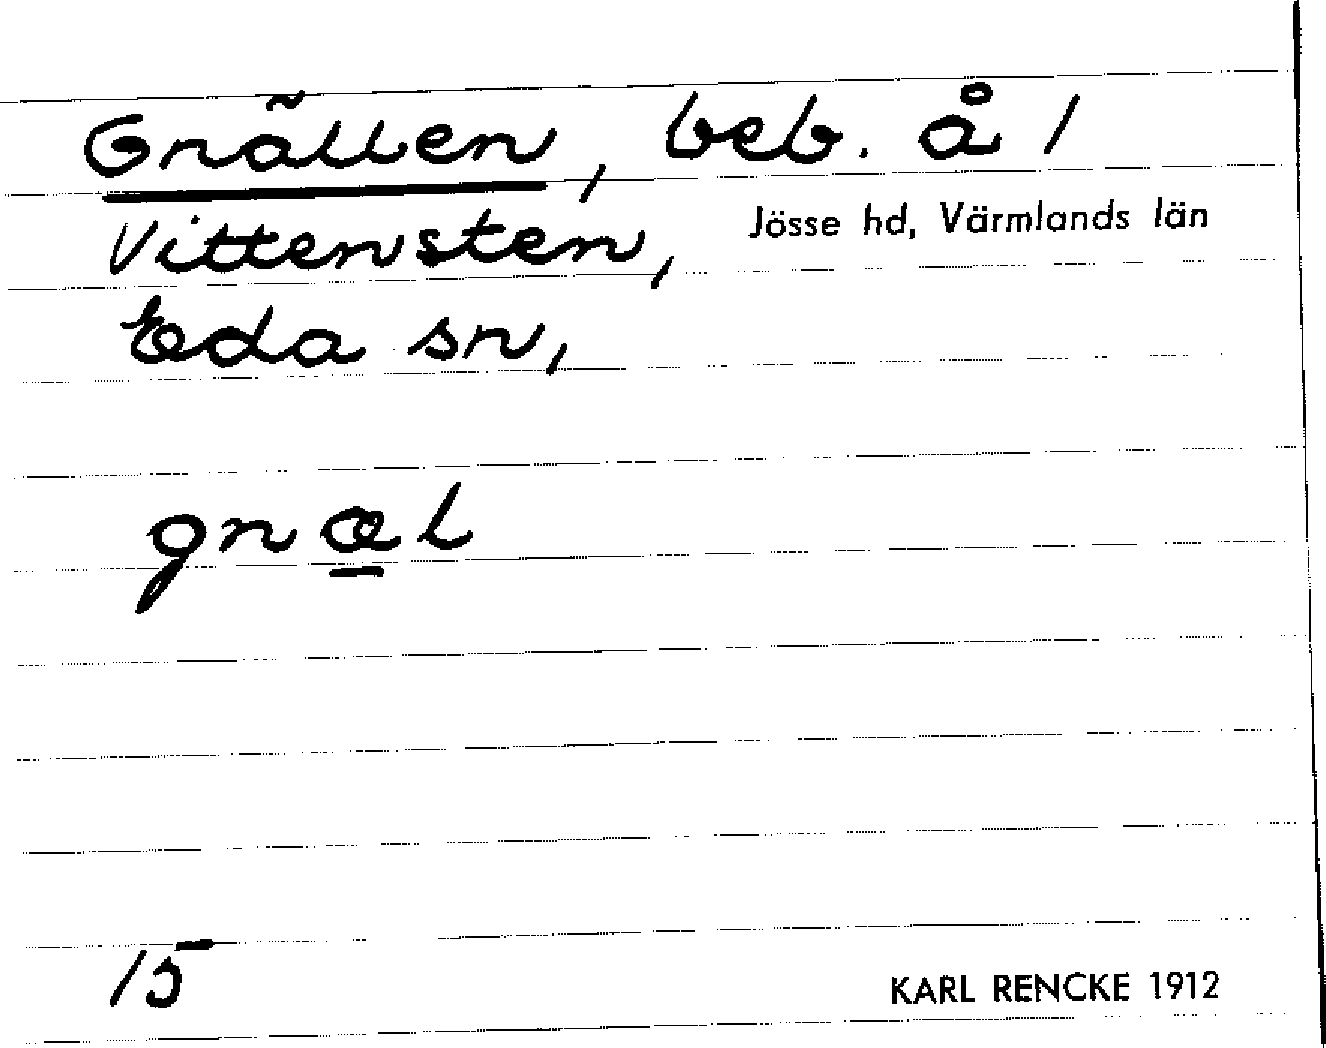 Gnällen, beb. å 1
Vittensten,
Jösse hd, Värmlands län
Eda sn,
gnæl
15
KARL RENCKE 1912